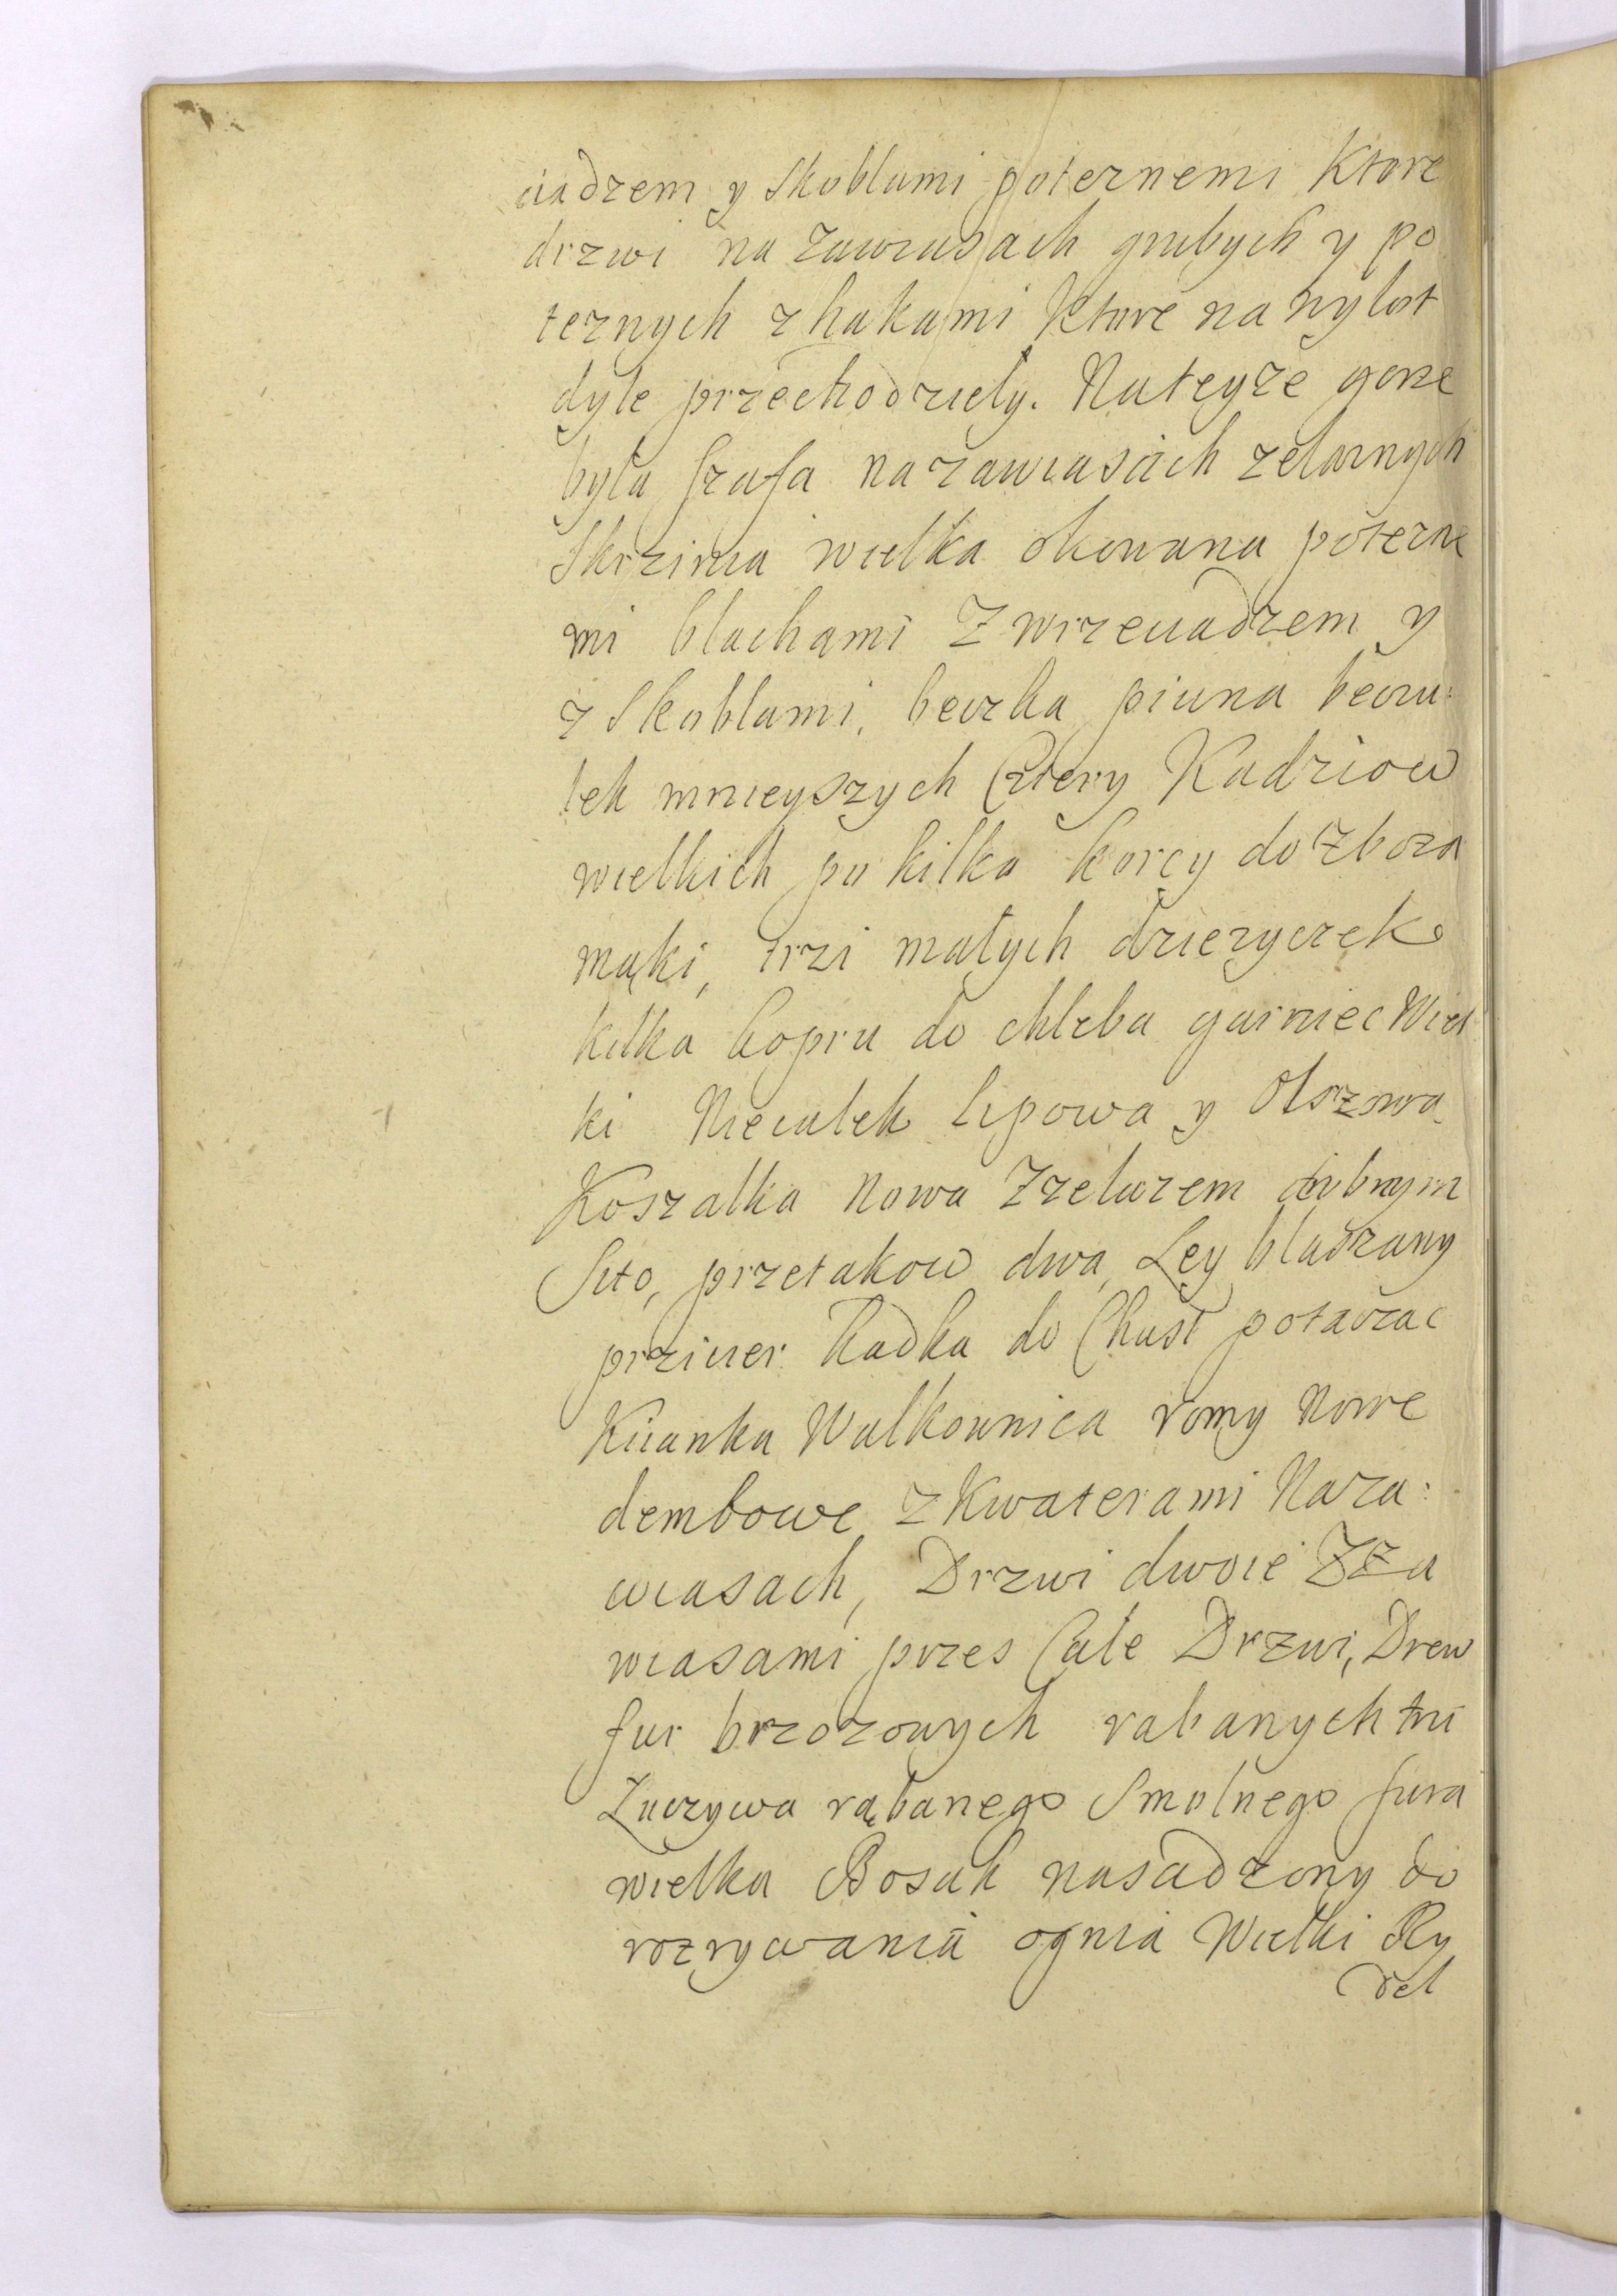 ciadzem y Skoblami poteznemi Ktore
drzwi na zawiasach grubych y po
teznych z hakami Ktore na wylot
dyle przechodziely. Nateyze gorze
była szafa na zawiasach zelaznych
Skrzinia wielka okowana potezne
mi blachami Z wrzeciadzem y
z Skoblami, beczka piwna beczu:
lek mnieyszych Cztery Kadziow
wielkich pu kilka korcy do zboza
mąki, trzi małych dziezyczek
kilka kopru do chleba garniec Wiel
ki Niecułek lipowa y Olszowa
Koszalka Nowa Zzelazem
Sito, przetakow dwa, Ley blaszany
Kadka do Chust
Kiianka Walkownica romy Nowe
dembowe z Kwaterami Naza:
wiasach, Drzwi dwoie Zza
wiasami przes Całe Drzwi, Drew
fur brzozowych rabanych tri
Łuczywa rąbanego Smolnego fura
wielka Bosak nasadzony do
rozrywania ognia Wielki Ry
del